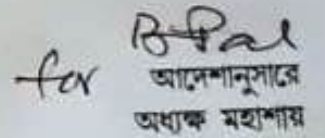 B. Pal
for আদেশানুসারে
অধ্যক্ষ মহাশয়